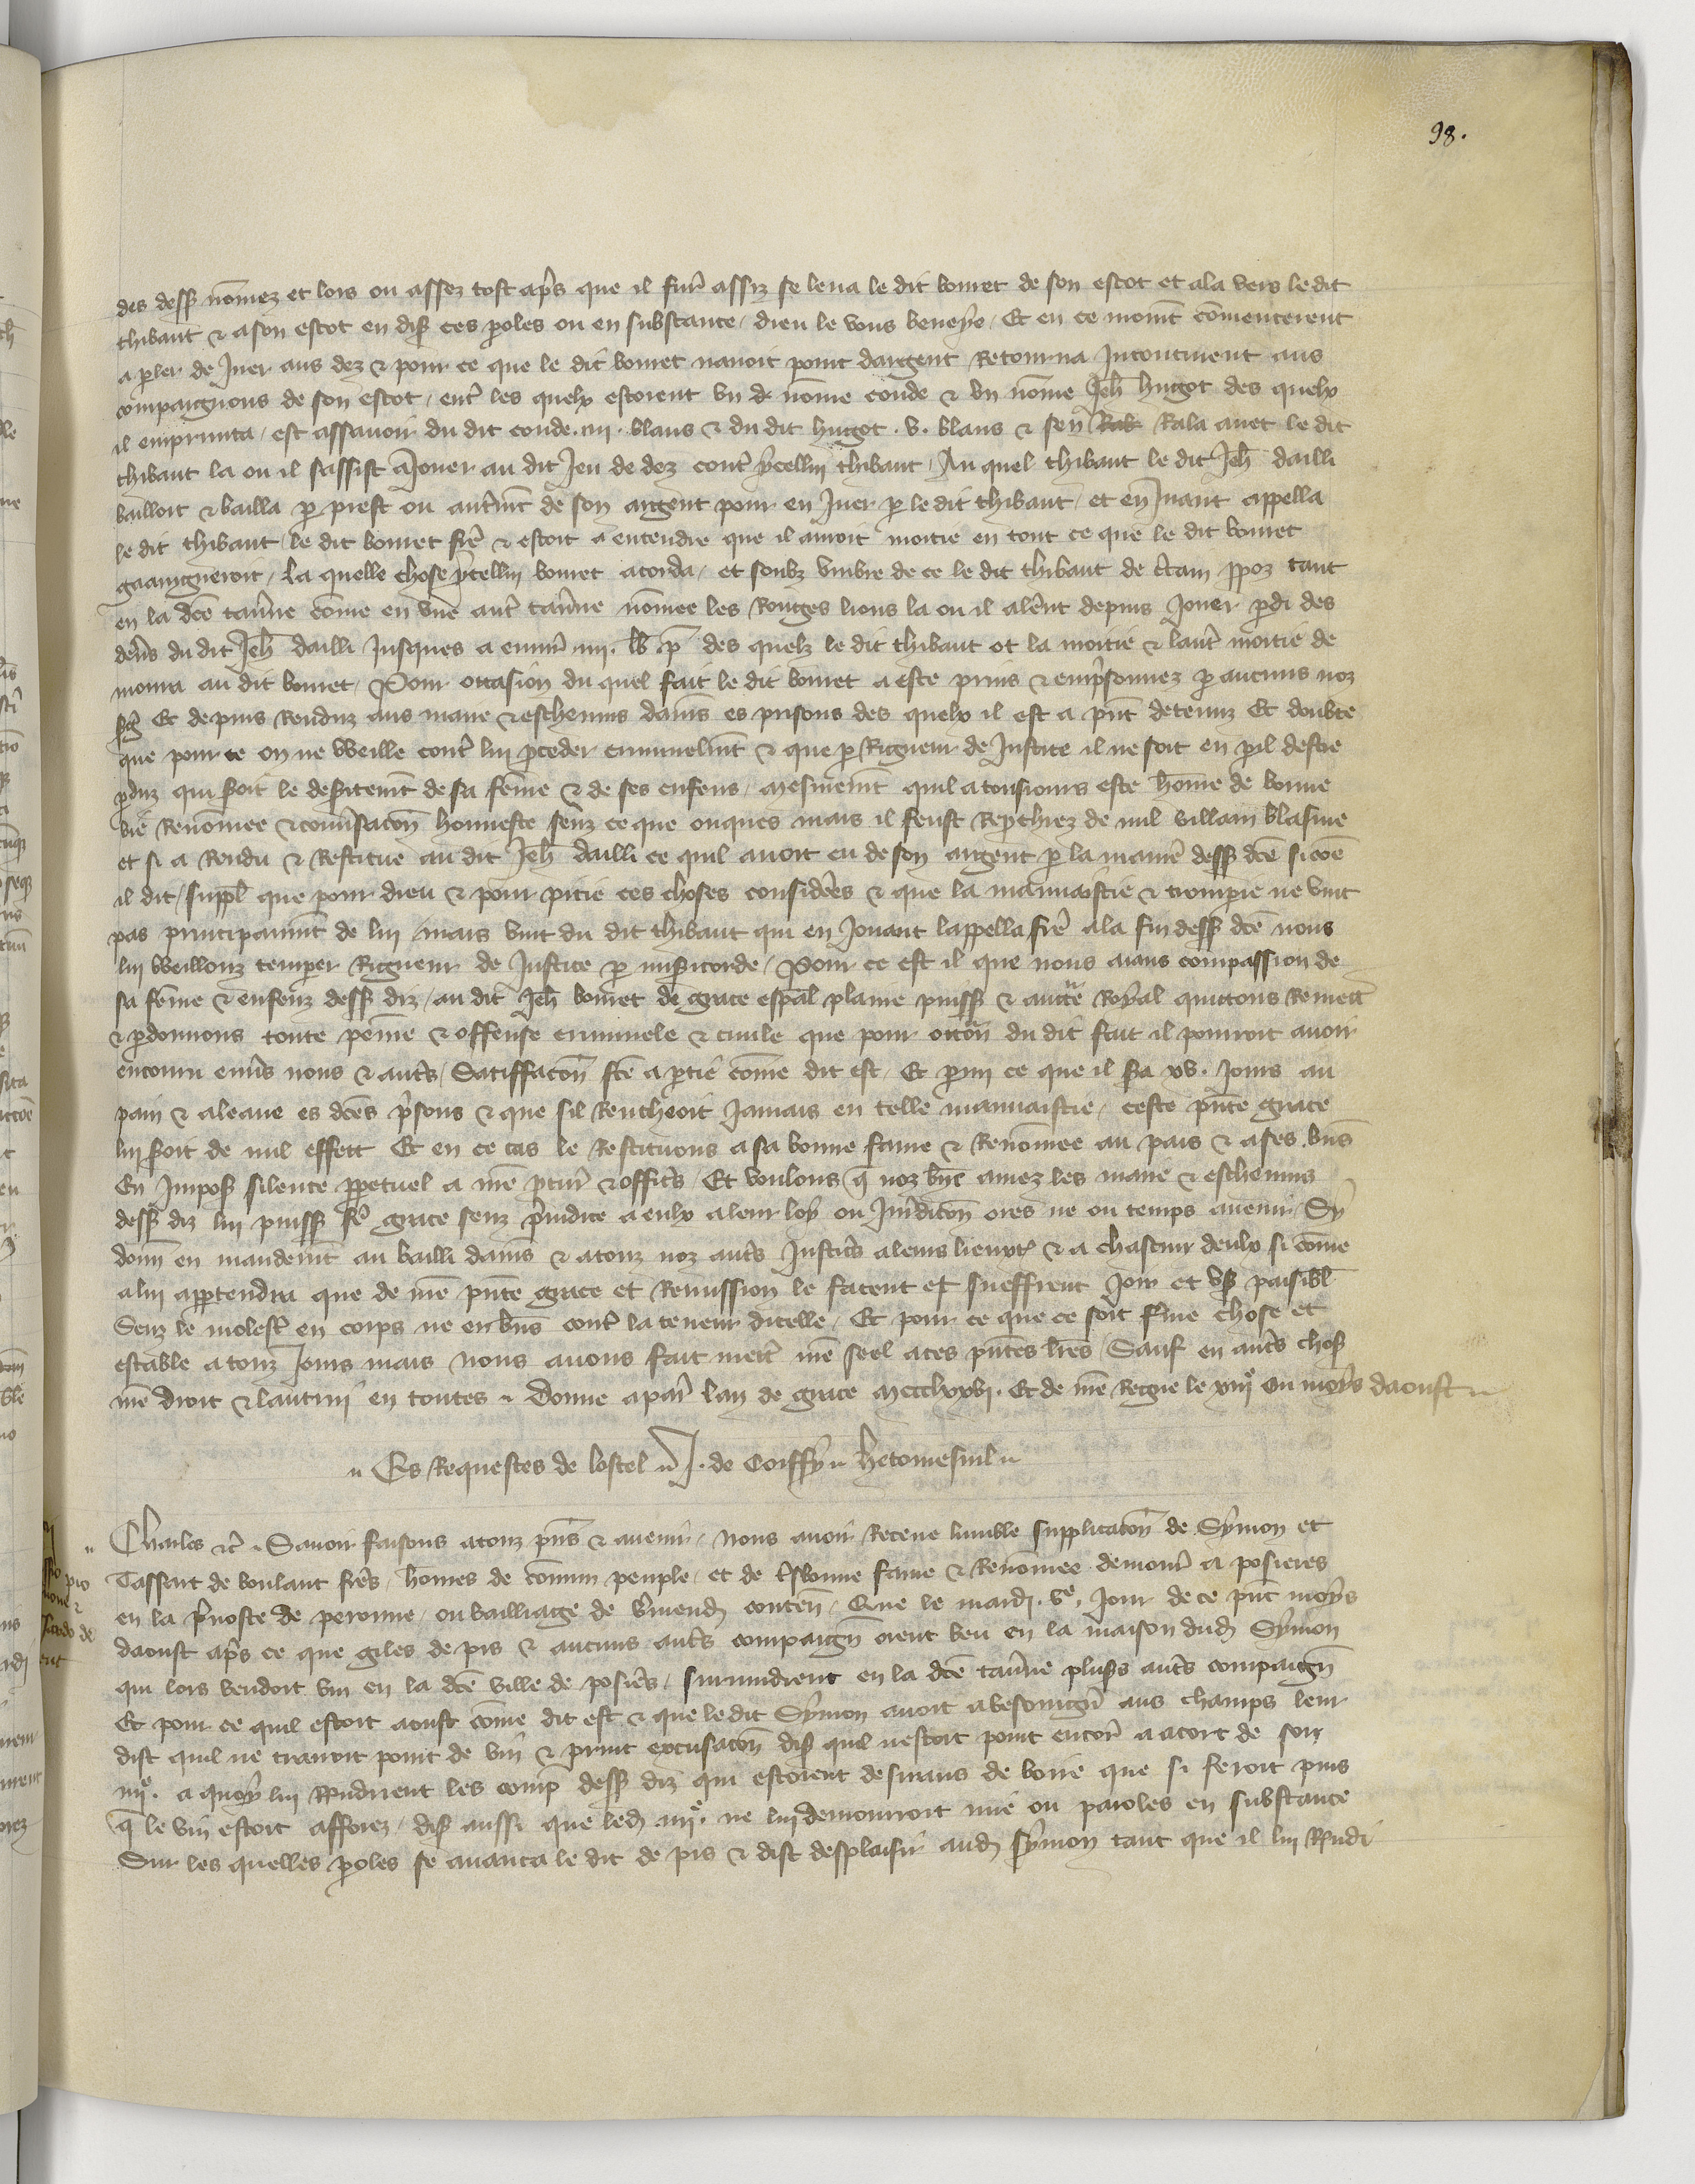 98.
des dess nōmez et lors ou assez tost apˀs que il furˀ assiz se leua le dit bomet de son escot et ala vers ledit
thibaut & a son escot en disˀ ces ꝑoles ou en substance / dieu le vous beneye / Et en ce momēt cōmencerent
a ꝑler de Iuer aus dez & pour ce que le dit bomet nauoit point dargent Retourna Incontinent aus
compaignons de son escot / entˀ les quelx estoient vn dˀ nōme coude & vn nōme Jeh̄ hugot des quelx
il emprunta / est assauoir du dit coude .iiii. blans & du dit hugot .v. blans & sen Rala auec le dit
thibaut la ou il sassist a Jouer au dit Jeu de dez contˀ ycellui thibaut / Au quel thibaut le dit Jeh̄ dailli
bailloit & bailla ꝑ prest ou autˀmēt de son argent pour en Iuer ꝑ le dit thibaut / et en Iuant appella
le dit thibaut le dit bomet frˀe & estoit a entendre que il auroit moitie en tout ce que le dit bomet
gaaigneroit / La quelle chose ycellui bomet acorda / et soubz vmbre de ce le dit thibaut de cˀtain ꝓpoz tant
en la dcē tauˀne cōme en vne autˀ tauˀne nōmee les Rouges lions la ou il alerˀnt depuis Jouer ꝑdi des
denˀs du dit Jeh̄ dailli Jusques a enuirˀ iiii. lb̄ .p̄. des quelz le dit thibaut ot la moitie & lautˀ moitie de
moura au dit bomet / Pour occasion du quel fait le dit bomet a este prins & empˀsonnez ꝑ aucuns noz
sgˀ Et depuis Renduz aus maire & escheuins damiēs es prisons des quelx il est a pn̄t detenuz Et doubte
que pour ce on ne vveille contˀ lui ꝓceder criminelmēt & que ꝑ Rigueur de Justice il ne soit en ꝑil destre
ꝑduz qui seroit le desertemēt de sa fēme & de ses enfens / mesmemēt quil a tousiours este hom̄e de bonne
vie Renōmee & conuˀsacōn honneste senz ce que onques mais il feust Repˀchiez de nul villain blasme
et si a Rendu & Restitue au dit Jeh̄ dailli ce quil auoit eu de son argent ꝑ la manieˀ dess dcē si cōe
il dit / suppl̄ que pour dieu & pour pitie ces choses considerˀes & que la mauuaistie & tromperie ne vint
pas principaumēt de lui mais vint du dit thibaut qui en Jouant lappella frˀe a la fin dess dcē nous
lui vveillonz temprer Rigueur de Justice ꝑ misˀicorde / Pour ce est il que nous aians compassion de
sa fēme & enfenz dess diz / au dit Jeh̄ bomet de grace esp̄al plaine puiss & auctˀe Royal quictons Remettˀ
& ꝑdonnons toute peinne & offense criminele & ciuile que pour occōn du dit fait il pourroit auoir
encouru enuˀs nous & autˀs / Satiffacōn fcē a ꝑtie cōme dit est / Et ꝑmi ce que il sˀa xv. Jours au
pain & a leaue es dcēs pˀsons & que sil Rencheoit Jamais en telle mauuaistie / ceste pn̄te grace
lui soit de nul effect Et en ce cas le Restituons a sa bonne fame & Renōmee au pais & a ses bn̄s
En Imposˀ silence ꝑpetuel a nr̄e ꝓcurˀ & officˀs / Et voulons q̄ noz bn̄ amez les maire & escheuins
dess diz lui puiss faˀ grace senz pˀiudice a eulx a leur loy ou Jurˀdicōn ores ne ou temps auenir / Sy
donn̄ en mandemēt au bailli damiēs & a touz noz autˀs Justicˀs a leurs lieuxtˀ & a chascun deulx si cōme
a lui apꝑtendra que de nr̄e pn̄te grace et Remission le facent et sueffrent Joir et vsˀ paisibl̄
Senz le molestˀ en corps ne en bn̄s contˀ la teneur dicelle / Et pour ce que ce soit fˀme chose et
estable a touz Jours mais nous auons fait mettˀ nr̄e seel a ces pn̄tes lr̄es / Sauf en autˀs chosˀ
nr̄e droit & lautrui en toutes / Donne a parˀ lan de grace mccclxxvi. Et de nr̄e Regne le xiiiᵉ ou moys daoust
Es Requestes de lostel J. de Coiffy hetomesnil
Charles &c̄ Sauoir faisons a touz pn̄s & auenir / nous auoir Receue lumble supplicacōn de Symon et
Tassart de boulant frˀes / hōmes de cōmun peuple / et de tˀsbonne fame & Renōmee demourˀ a posieres
en la pˀuoste de peronne / ou bailliage de vˀmendˀ conten̄ / Que le mardi .vᵉ. Jour de ce pn̄t moys
daoust apˀs ce que giles de pis & aucuns autˀs compaign̄ orent beu en la maison dudˀ Symon
qui lors vendoit vin en la dcē ville de posierˀs / suruindrent en la dcē tauˀne plusˀs autˀs compaign̄
Et pour ce quil estoit aoust cōme dit est & que le dit Symon auoit a besoingnˀ aus champs leur
dist quil ne trairoit point de vin & print excusacōn disˀ quil nestoit point encorˀ a acort de son
iiiiᵉ. a quoy lui Rn̄dirent les comp̄ dess diz qui estoient desirans de boire que si feroit puis
q̄ le vin estoit afforez / disˀ aussi que ledˀ iiiiᵉ. ne lui demourroit mie ou paroles en substance
Sur les quelles ꝑoles se auanca le dit de pis & dist desplaisir audˀ Symon tant que il lui Rn̄di